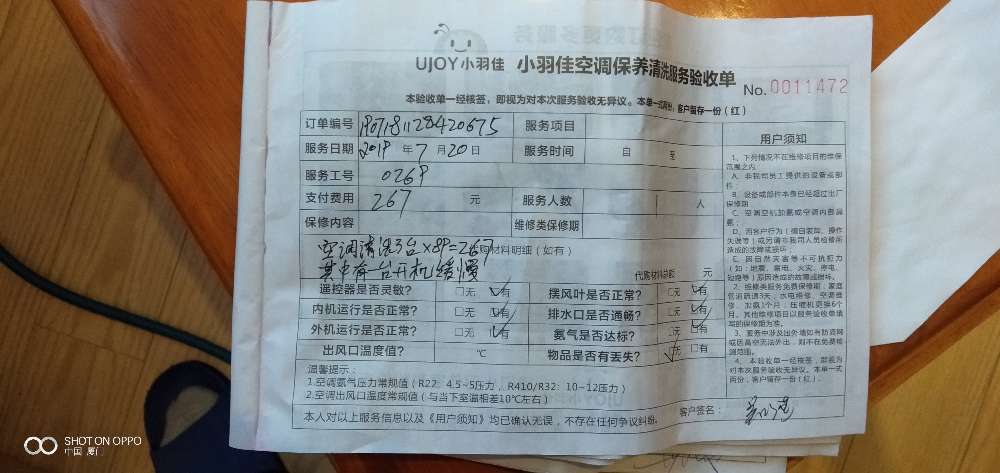 UJOY小羽佳 小羽佳空调保养清洗服务验收单
No. 0011472
本验收单一经核签,即视为对本次服务验收无异议。本单一式两份,客户留存一份(红)
订单编号 服务项目
服务日期 2019 年 7 月 20 日 服务时间 自 至
服务工号 0269
支付费用 267 元 服务人数 人
保修内容 维修类保修期
空调清洗3台×89=267 代购材料明细(如有)
其中有一台开机缓慢
代购材料总额 元
遥控器是否灵敏? □无 □有 摆风叶是否正常? □无 □有
内机运行是否正常? □无 □有 排水口是否通畅? □无 □有
外机运行是否正常? □无 □有 氨气是否达标? □无 □有
出风口温度值? ℃ 物品是否有丢失? □无 □有
温馨提示:
1.空调氨气压力常规值(R22:4.5~5压力,R410/R32:10~12压力)
2.空调出风口温度常规值(与当下室温相差10℃左右)
本人对以上服务信息以及《用户须知》均已确认无误,不存在任何争议纠纷。
客户签名:
用户须知
1、下列情况不在维修项目的维保
范围之内
A、非我司员工提供的设备或部
件;
B、设备或部件本身已经超过出厂
保修期
C、空调空机加氨或空调内部漏
氨;
D、因客户行为(擅自装卸、操作
失误等)或另请非我司人员检修所
造成的故障或损坏;
E、因自然灾害等不可抗拒力
(如:地震、雷电、火灾、停电、
短路等)原因造成的故障或损坏。
2、维修类服务免费保修期:家庭
管道疏通3天,水电维修、空调维
修、加氨1个月,压缩机更换6个
月。其他维修项目以服务验收单填
写的保修期为准。
3、服务中涉及出外墙如有防盗网
或因高空无法外出,则不在免费检
测范围。
4、本验收单一经核签,即视为
对本次服务验收无异议。本单一式
两份,客户留存一份(红)。
SHOT ON OPPO
中国 厦门